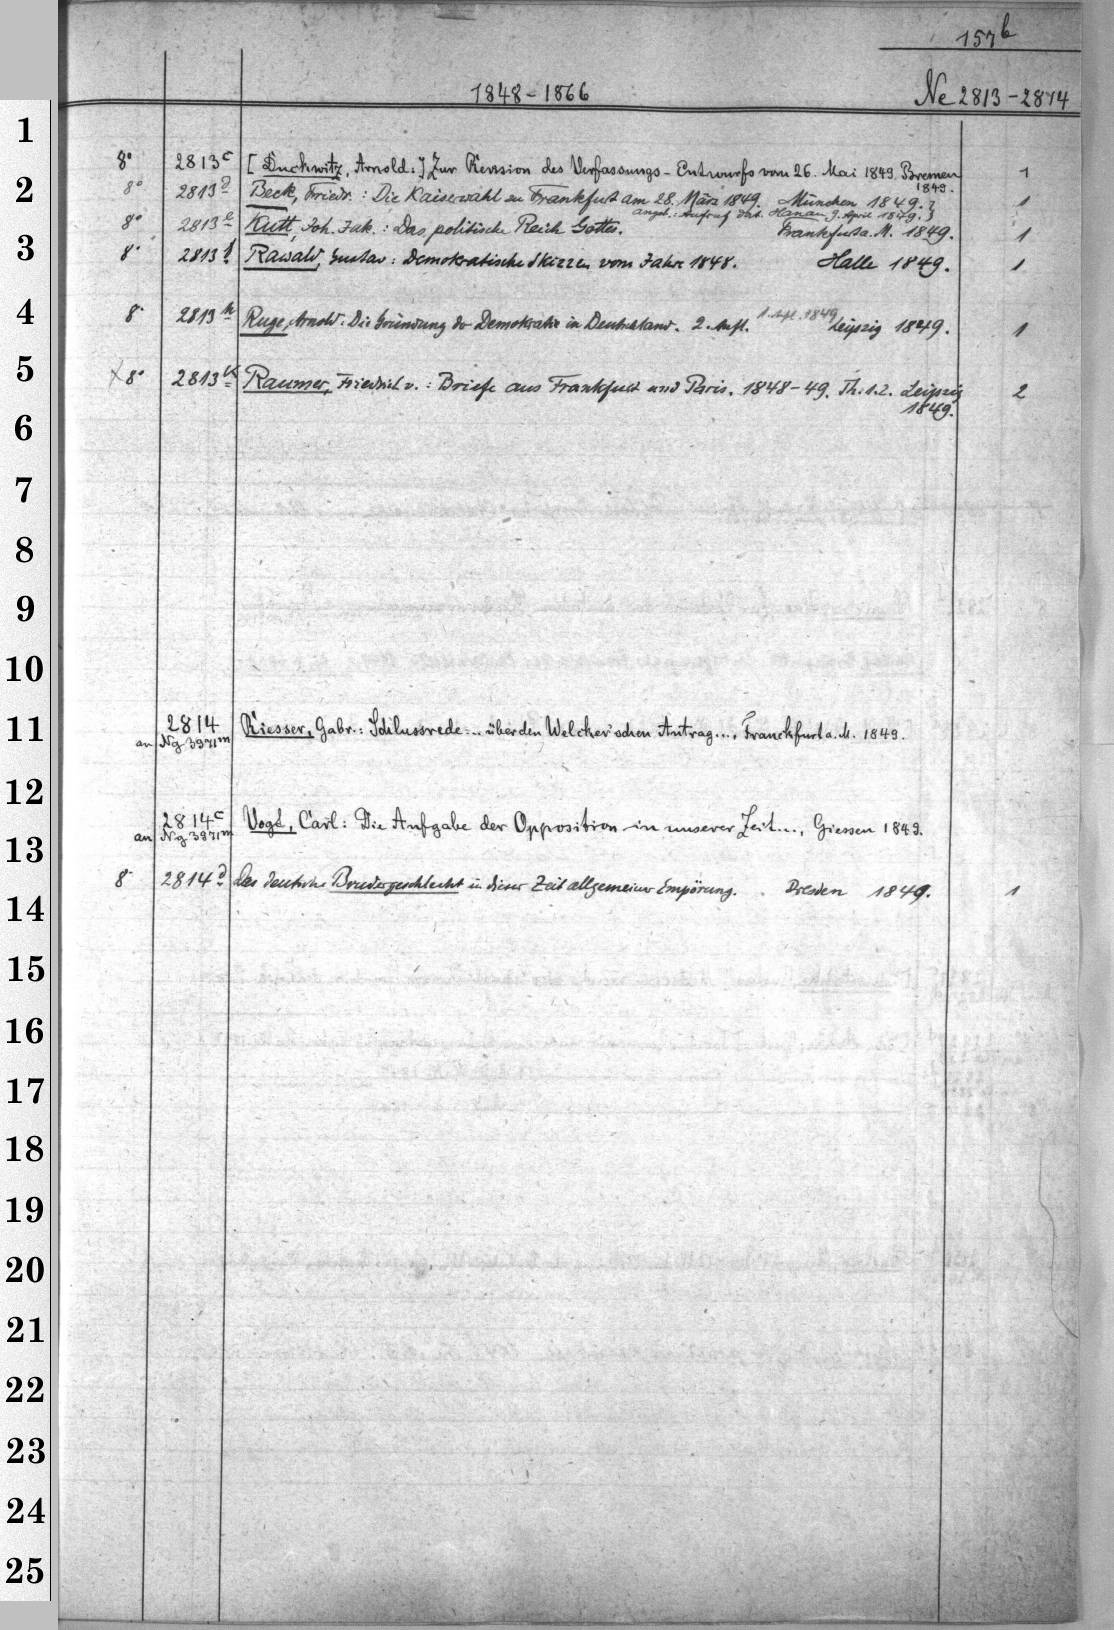 157b
1848-1866
Ne 2813-2814
1
8° 2813c [Duckwitz, Arnold:] Zur Revision des Verfassungs-Entwurfs vom 26. Mai 1849. Bremen 1
1849.
2
8° 2813d Beck, Friedr.: Die Kaiserwahl zu Frankfurt am 28. März 1849. München 1849. 1
angeb.: Aufruf dat. Hanau 9. April 1849.
8° 2813e Kutt, Joh. Jak.: Das politische Reich Gottes. Frankfurt a. M. 1849. 1
3
8° 2813f Rawald, Gustav: Demokratische Skizzen vom Jahre 1848. Halle 1849. 1
4
8° 2813h Ruge, Arnold: Die Gründung der Demokratie in Deutschland. 2. Aufl. 1. Aufl. 1849 Leipzig 1849. 1
5
8° 2813k Raumer, Friedrich v.: Briefe aus Frankfurt und Paris. 1848-49. Th. 1.2. Leipzig 2
1849.
6
7
8
9
10
11
2814 Riesser, Gabr.: Schlussrede... über den Welcker'schen Antrag..., Franckfurt a. M. 1849.
an Ng 3971m
12
2814c Vogt, Carl: Die Aufgabe der Opposition in unserer Zeit..., Giessen 1849.
an Ng 3971m
13
8° 2814d Das deutsche Brudergeschlecht in dieser Zeit allgemeiner Empörung. Dresden 1849. 1
14
15
16
17
18
19
20
21
22
23
24
25